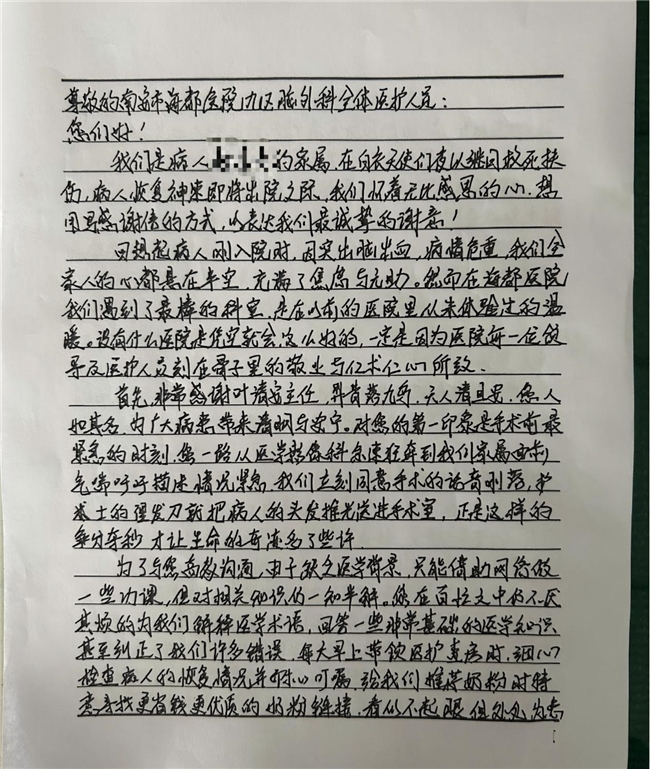 尊敬的南安市海都医院九区脑外科全体医护人员：
您们好！
我们是病人的家属,在白衣天使们夜以继日救死扶
伤,病人恢复神速即将出院之际,我们怀着无比感恩的心,想
用写感谢信的方式,以表达我们最诚挚的谢意！
回想起病人刚入院时,因突出脑出血,病情危重,我们全
家人的心都悬在半空,充满了焦虑与无助。然而在海都医院
我们遇到了最棒的科室,是在以前的医院里从未体验过的温
暖。没有什么医院是凭空就会这么好的,一定是因为医院每一位领
导及医护人员刻在骨子里的敬业与仁术仁心所致.
首先,非常感谢叶清安主任,界昔荡九野,天人清且安,您人
如其名,为广大病患带来清明与安宁。对您的第一印象是手术前最
紧急的时刻,您一路从医学影像科急速狂奔到我们家属面前,
气喘吁吁描述情况紧急,我们立刻同意手术的话音刚落,护
士的理发刀就把病人的头发推光送进手术室,正是这样的
争分夺秒才让生命的奇迹多了些许.
为了与您高效沟通,由于缺乏医学背景,只能借助网络做
一些功课,但对相关知识仍一知半解。您在百忙之中仍不厌
其烦的为我们解释医学术语,回答一些非常基础的医学知识
甚至纠正了我们许多错误.每天早上带领医护查房时,细心
检查病人的恢复情况并耐心叮嘱,给我们推荐奶粉时特
意寻找更省钱更优质的奶粉链接,看似不起眼但处处为患